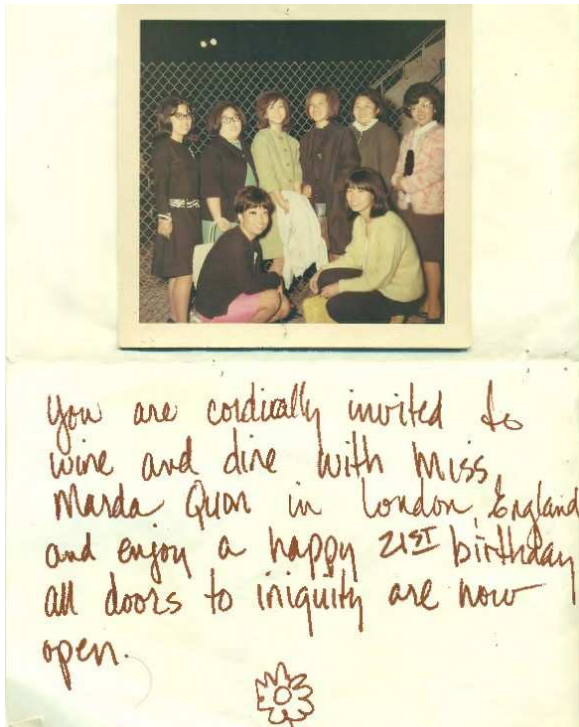 you are cordially invited to
wine and dine with Miss
Marda Quon in London, England
and enjoy a happy 21ST birthday
all doors to iniquity are now
open.